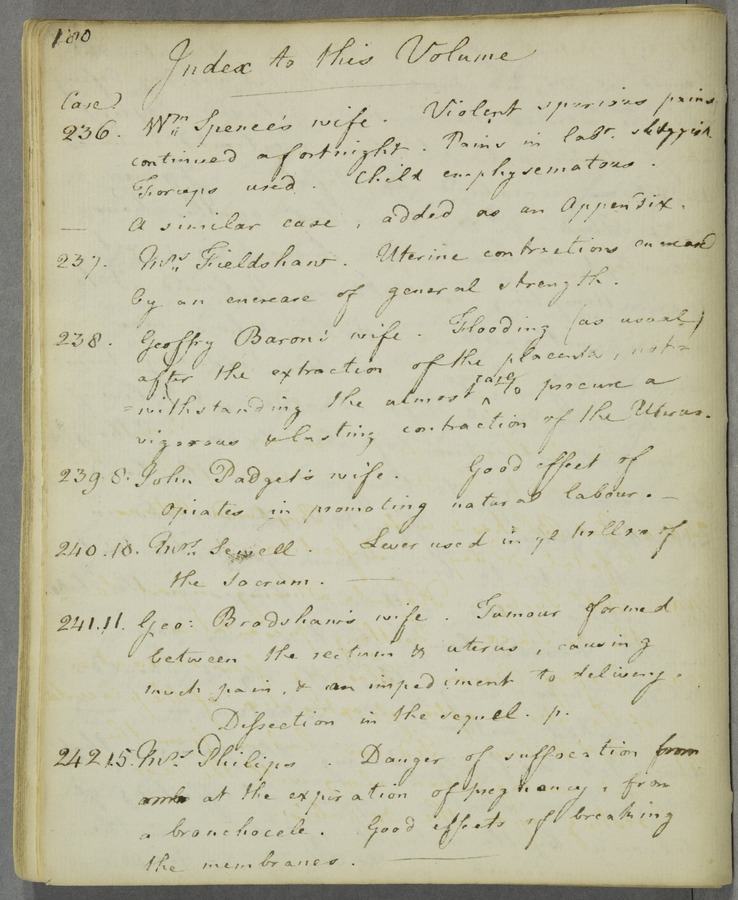 180
Index to this Volume
Case
236. Wm Spence's wife. Violent spurious pains
continued a fortnight. Pains in labr. sluggish.
Forceps used. Child emphysematous.
— A similar case, added as an Appendix.
237. Mrs Fieldshaw. Uterine contractions encreased
by an encrease of general strength.
238. Geoffry Baron's wife. Flooding (as usual)
after the extraction of the placenta, not=
=withstanding the almost care to procure a
vigorous & lasting contraction of the Uterus.
239. 8. John Padget's wife. Good effect of
opiates in promoting natural labour. —
240. 10. Mrs. Sewell. Lever used in ye hollow of
the sacrum. —
241. 11. Geo: Bradshaw's wife. Tumour formed
between the rectum & uterus, causing
much pain, & an impediment to delivery.
Dissection in the sequel. p.
242. 15. Mrs. Philips. Danger of suffocation from
at the expiration of pregnancy, from
a bronchocele. Good effects of breaking
the membranes. —